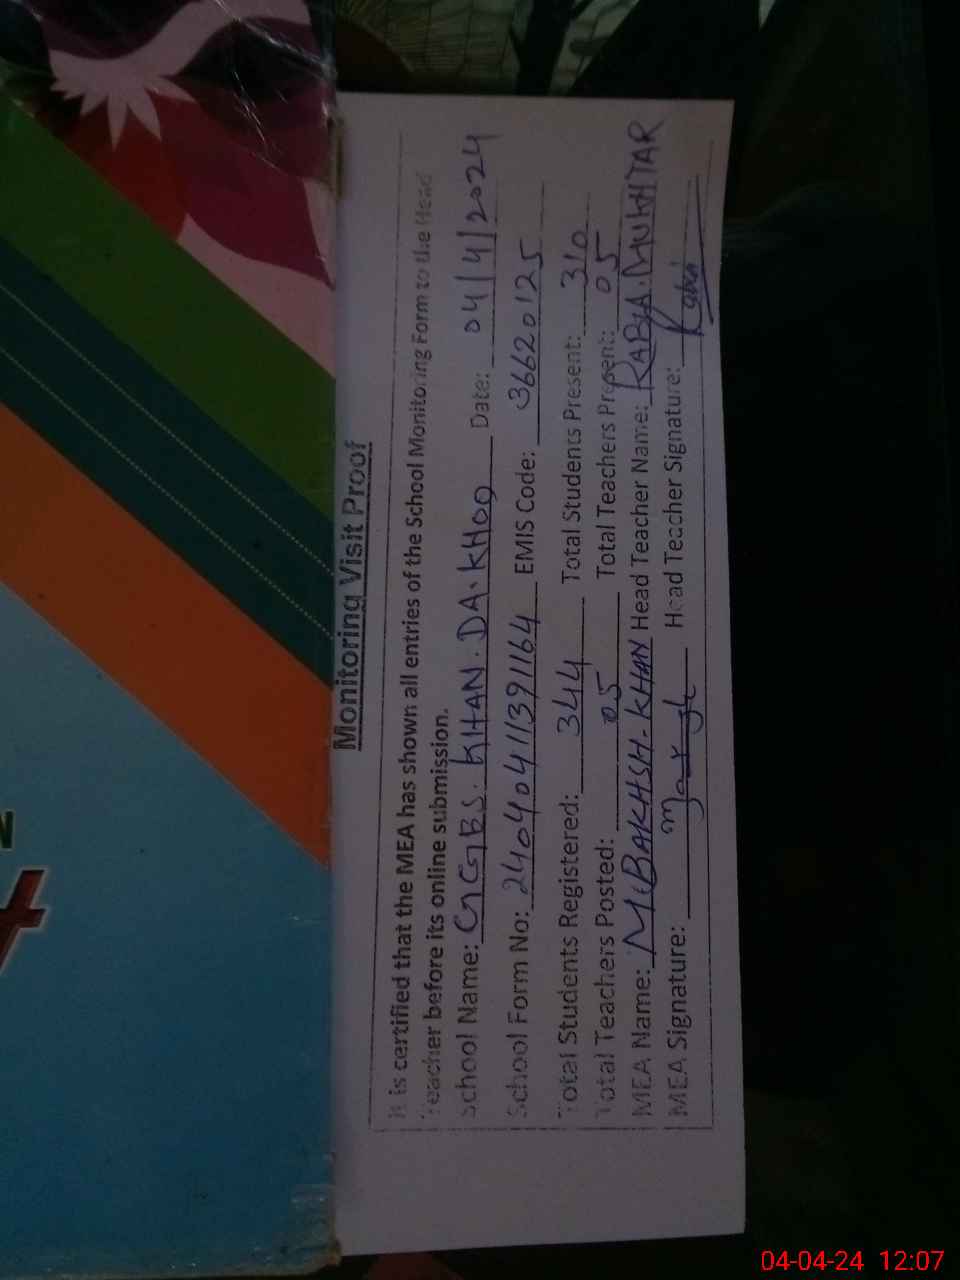 Monitoring Visit Proof
It is certified that the MEA has shown all entries of the School Monitoring Form to the Head
Teacher before its online submission.
School Name: GGBS. KHAN. DA. KHOO Date: 04/4/2024
School Form No: 24040411391164 EMIS Code: 36620125
Total Students Registered: 344 Total Students Present: 310
Total Teachers Posted: 05 Total Teachers Present: 05
MEA Name: M.BAKHSH-KHAN Head Teacher Name: RABIA.MUKHTAR
MEA Signature: Head Teacher Signature: Rabia
04-04-24 12:07